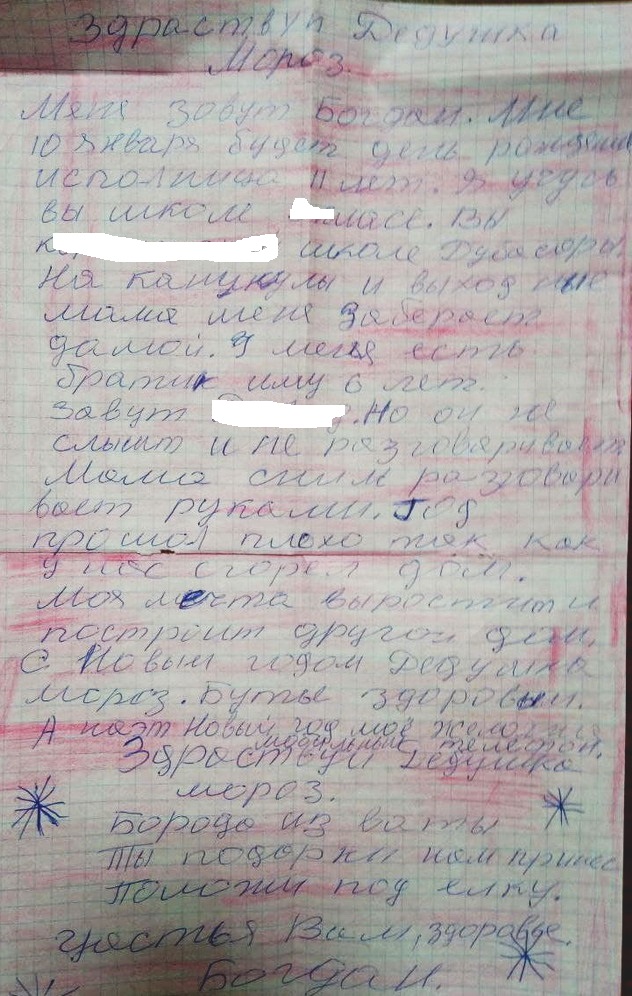 Здраствуй Дедушка
Мороз.
Меня зовут Богдан. Мне
10 января будет день рождения
исполница 11 лет. Я учусь
вы школе класе. Вы
школе Дубасоры.
На канукулы и выходные
мама меня заберает
дамой. У меня есть
братик иму 6 лет.
Завут . Но он не
слышт и не разговаривает
Мама сним разговари
вает руками. Год
прошол плохо так как
у нас сгорел дом.
Моя мечта выростит и
построит другой дом.
С Новым годом Дедушка
мороз. Буты здоровым.
А наэт Новый год моё желания
мобильный телефон.
Здраствуй Дедушка
мороз.
Борода из ваты
Ты подарки нам принес
Положи под елку.
Щастья Вам, здоровье.
Богдан.